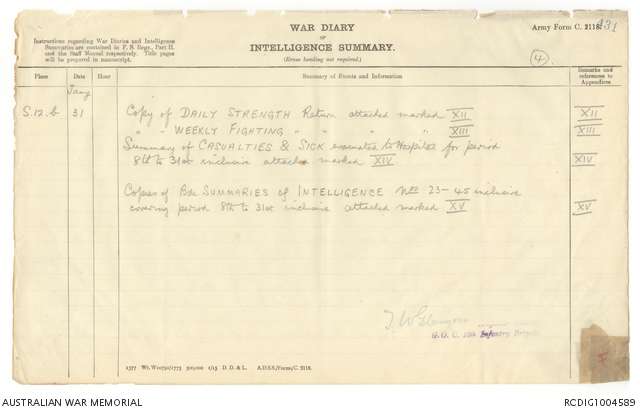 WAR DIARY
or
INTELLIGENCE SUMMARY.
(Erase heading not required.)
Army Form C. 2118.
131
(4)
Instructions regarding War Diaries and Intelligence
Summaries are contained in F. S. Regs., Part II.
and the Staff Manual respectively. Title pages
will be prepared in manuscript.
Place Date Hour Summary of Events and Information Remarks and references to Appendices
Jany
S.12.b 31 Copy of DAILY STRENGTH Return attached marked XII XII
" " WEEKLY FIGHTING " " " XIII XIII
Summary of CASUALTIES & SICK evacuated to Hospital for period
8th to 31st inclusive attached marked XIV XIV
Copies of Bde SUMMARIES of INTELLIGENCE Nos 23-45 inclusive
covering period 8th to 31st inclusive attached marked XV XV
G.O.C. Infantry Brigade
F
1577 Wt. 1773 500,000 1/15 D. D. & L. A.D.S.S./Forms/C. 2118.
AUSTRALIAN WAR MEMORIAL
RCDIG1004589